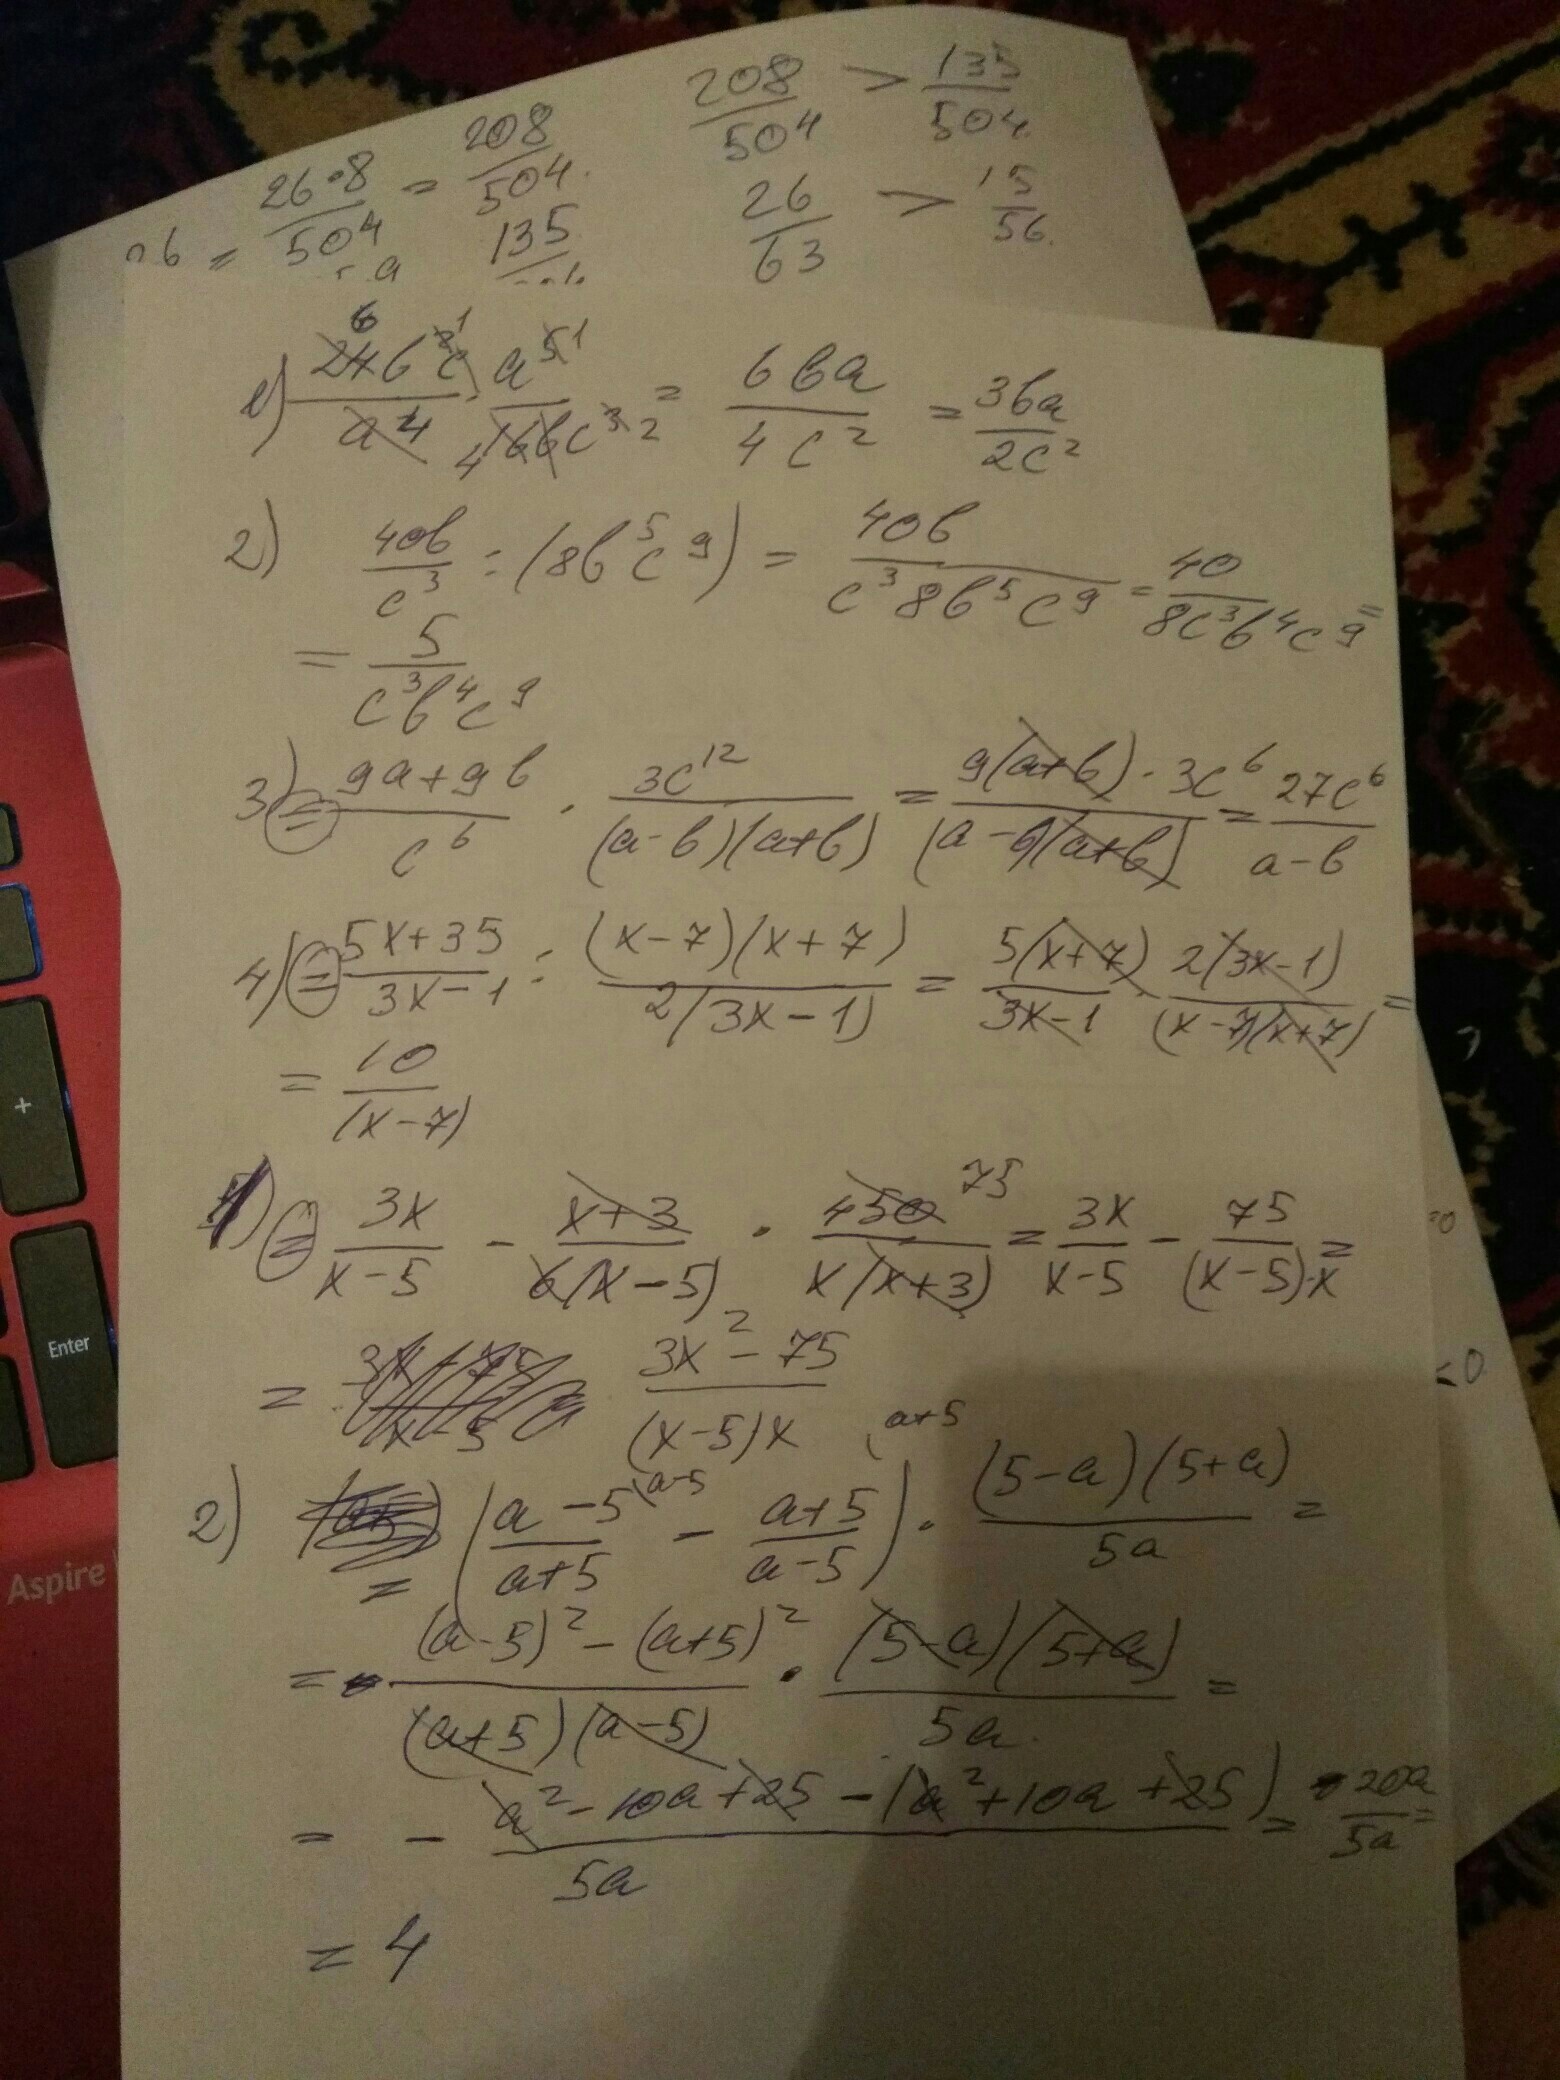 26·8/504 = 208/504.   208/504 > 135/504.
135   26/63 > 15/56.
1) 24b²c/a⁴ · a⁵/16bc³ = 6ba/4c² = 3ba/2c²
2) 40b/c³ : (8b⁵c⁹) = 40b/c³8b⁵c⁹ = 40/8c³b⁴c⁹ =
= 5/c³b⁴c⁹
3) = 9a+9b/c⁶ · 3c¹²/(a-b)(a+b) = 9(a+b)·3c⁶/(a-b)(a+b) = 27c⁶/a-b
4) = 5x+35/3x-1 : (x-7)(x+7)/2(3x-1) = 5(x+7)/3x-1 · 2(3x-1)/(x-7)(x+7) =
= 10/(x-7)
1) = 3x/x-5 - x+3/6(x-5) · 450/x(x+3) 75 = 3x/x-5 - 75/(x-5)·x =
= 3x²-75/(x-5)x
2) = (a-5/a+5 (a-5 - a+5/a-5 (a+5) · (5-a)(5+a)/5a =
= (a-5)²-(a+5)²/(a+5)(a-5) · (5-a)(5+a)/5a =
= - a²-10a+25-(a²+10a+25)/5a = 20a/5a =
= 4
+
Enter
Aspire
=0
<0